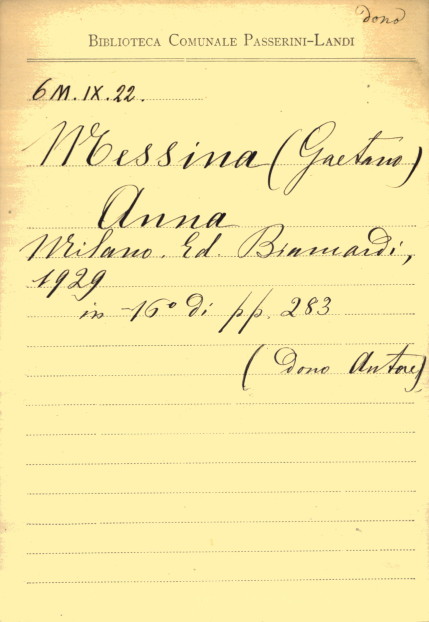 dono
BIBLIOTECA COMUNALE PASSERINI-LANDI
6 M. IX. 22.
Messina (Gaetano)
Anna
Milano. Ed. Bramardi,
1929
in -16° di pp. 283
(dono Autore)